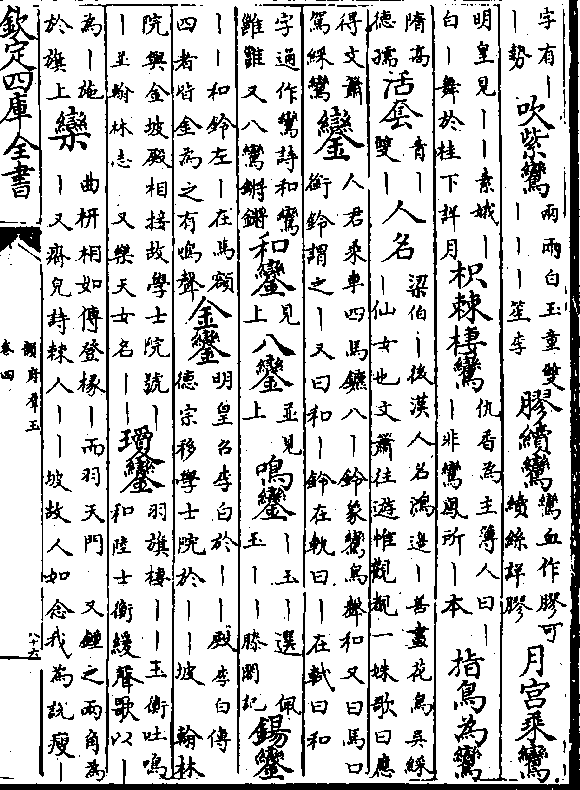 欽定四庫全書
韻府羣玉
卷四
字有丨
丨勢
吹紫鸞
兩兩白玉童雙
丨丨丨笙李
膠續鸞
鸞血作膠可
續絲詳膠
月宫乗鸞
明皇見丨丨素娥丨
白丨舞於桂下詳月
枳棘棲鸞
仇香為主簿人曰丨
丨非鸞鳳所丨本
指鳥為鸞
隋髙
德孺
活套
青丨
雙丨
人名
梁伯丨後漢人名鴻邊丨善畫花鳥吳綵
丨仙女也文蕭往遊惟觀覩一姝歌曰應
得文蕭
駕綵鸞
鑾
人君乗車四馬鑣八丨鈴象鸞鳥聲和又曰馬口
銜鈴謂之丨又曰和丨鈴在軾曰丨在軾曰和
字通作鸞詩和鸞
雝雝又八鸞鏘鏘
和鑾
見
上
八鑾
並見
上
鳴鑾
丨玉丨選 佩
玉丨丨滕閣記
鍚鑾
丨丨和鈴左丨在馬額
四者皆金為之有鳴聲
金鑾
明皇召李白於丨丨殿李白傳
德宗移學士院於丨丨坡 翰林
院與金坡殿相接故學士院號丨
丨並翰林志 又樂天女名丨丨
瓊鑾
羽旗棲丨丨玉衡吐鳴
和陸士衡緩聲歌以丨
為丨施
於旗上
欒
曲枅相如傳登椽丨而羽天門 又鍾之兩角為
丨又齊兒詩棘人丨丨坡故人如念我為說瘦丨